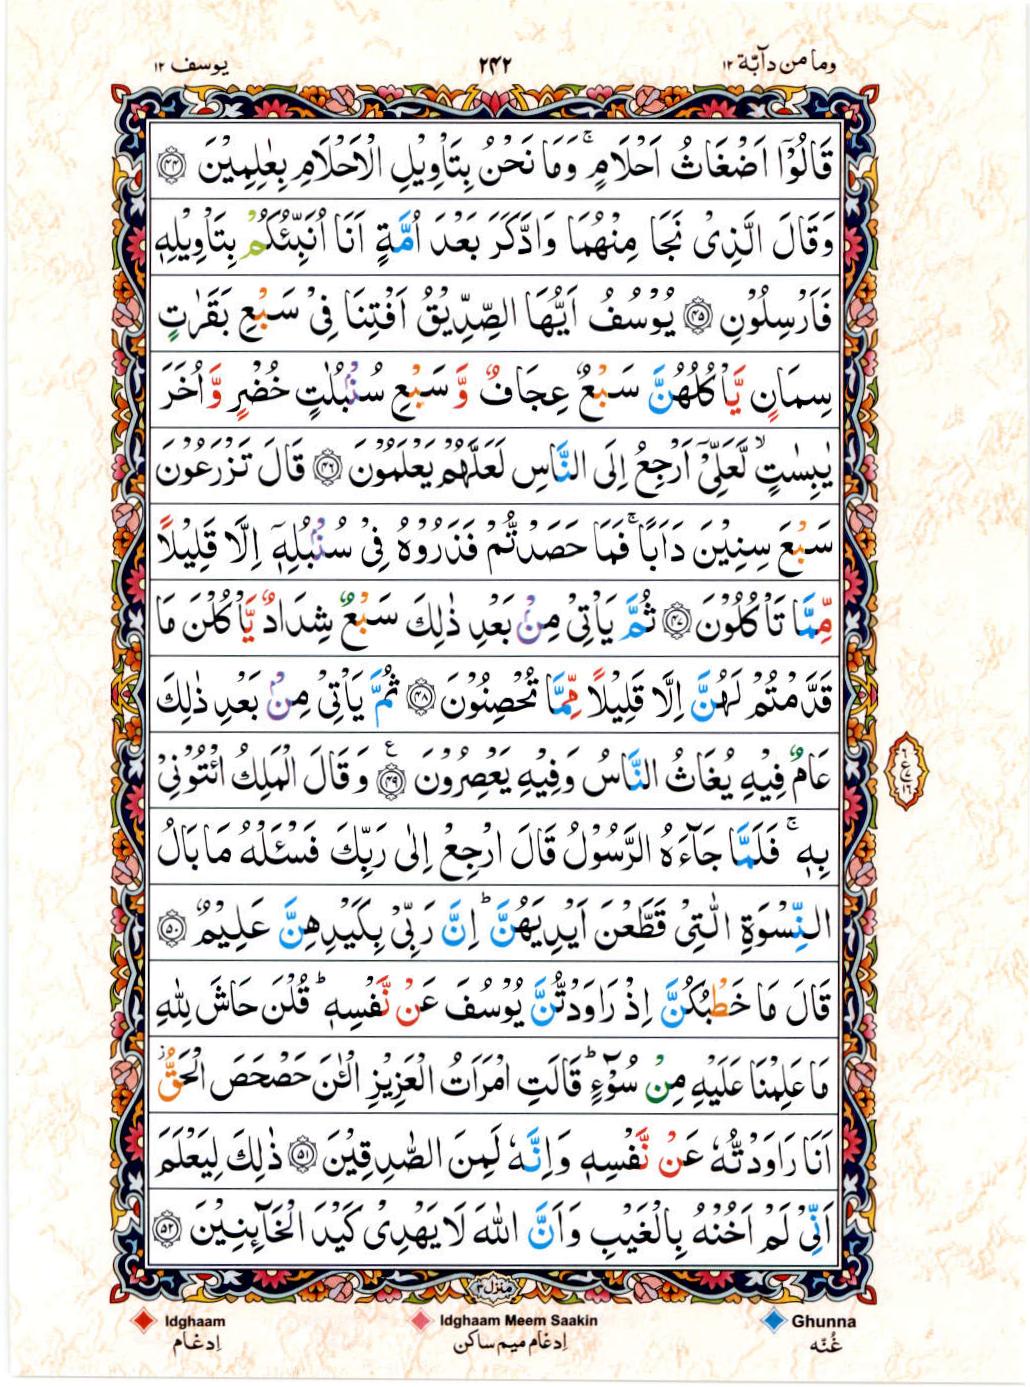 وما من دآبّة ١٢
٢٤٢
يوسف ١٢
قَالُوْٓا اَضْغَاثُ اَحْلَامٍ ۚ وَمَا نَحْنُ بِتَاْوِيْلِ الْاَحْلَامِ بِعٰلِمِيْنَ ﴿۴۴﴾
وَقَالَ الَّذِىْ نَجَا مِنْهُمَا وَادَّكَرَ بَعْدَ اُمَّةٍ اَنَا اُنَبِّئُكُمْ بِتَاْوِيْلِهٖ
فَاَرْسِلُوْنِ ﴿۴۵﴾ يُوْسُفُ اَيُّهَا الصِّدِّيْقُ اَفْتِنَا فِىْ سَبْعِ بَقَرٰتٍ
سِمَانٍ يَّاْكُلُهُنَّ سَبْعٌ عِجَافٌ وَّ سَبْعِ سُنْۢبُلٰتٍ خُضْرٍ وَّ اُخَرَ
يٰبِسٰتٍ ۙ لَّعَلِّىْٓ اَرْجِعُ اِلَى النَّاسِ لَعَلَّهُمْ يَعْلَمُوْنَ ﴿۴۶﴾ قَالَ تَزْرَعُوْنَ
سَبْعَ سِنِيْنَ دَاَبًا ۚ فَمَا حَصَدْتُّمْ فَذَرُوْهُ فِىْ سُنْۢبُلِهٖٓ اِلَّا قَلِيْلًا
مِّمَّا تَاْكُلُوْنَ ﴿۴۷﴾ ثُمَّ يَاْتِىْ مِنْۢ بَعْدِ ذٰلِكَ سَبْعٌ شِدَادٌ يَّاْكُلْنَ مَا
قَدَّمْتُمْ لَهُنَّ اِلَّا قَلِيْلًا مِّمَّا تُحْصِنُوْنَ ﴿۴۸﴾ ثُمَّ يَاْتِىْ مِنْۢ بَعْدِ ذٰلِكَ
عَامٌ فِيْهِ يُغَاثُ النَّاسُ وَفِيْهِ يَعْصِرُوْنَ ﴿۴۹﴾ ع وَقَالَ الْمَلِكُ ائْتُوْنِىْ
بِهٖ ۚ فَلَمَّا جَآءَهُ الرَّسُوْلُ قَالَ ارْجِعْ اِلٰى رَبِّكَ فَسْـَٔلْهُ مَا بَالُ
النِّسْوَةِ الّٰتِىْ قَطَّعْنَ اَيْدِيَهُنَّ ؕ اِنَّ رَبِّىْ بِكَيْدِهِنَّ عَلِيْمٌ ﴿۵۰﴾
قَالَ مَا خَطْبُكُنَّ اِذْ رَاوَدْتُّنَّ يُوْسُفَ عَنْ نَّفْسِهٖ ؕ قُلْنَ حَاشَ لِلّٰهِ
مَا عَلِمْنَا عَلَيْهِ مِنْ سُوْٓءٍ ؕ قَالَتِ امْرَاَتُ الْعَزِيْزِ الْـٰٔنَ حَصْحَصَ الْحَقُّ ؗ
اَنَا رَاوَدْتُّهٗ عَنْ نَّفْسِهٖ وَاِنَّهٗ لَمِنَ الصّٰدِقِيْنَ ﴿۵۱﴾ ذٰلِكَ لِيَعْلَمَ
اَنِّىْ لَمْ اَخُنْهُ بِالْغَيْبِ وَاَنَّ اللّٰهَ لَا يَهْدِىْ كَيْدَ الْخَآئِنِيْنَ ﴿۵۲﴾
منزل ٣
Idghaam
Idghaam Meem Saakin
Ghunna
اِدغام
اِدغام ميم ساكن
غُنّه